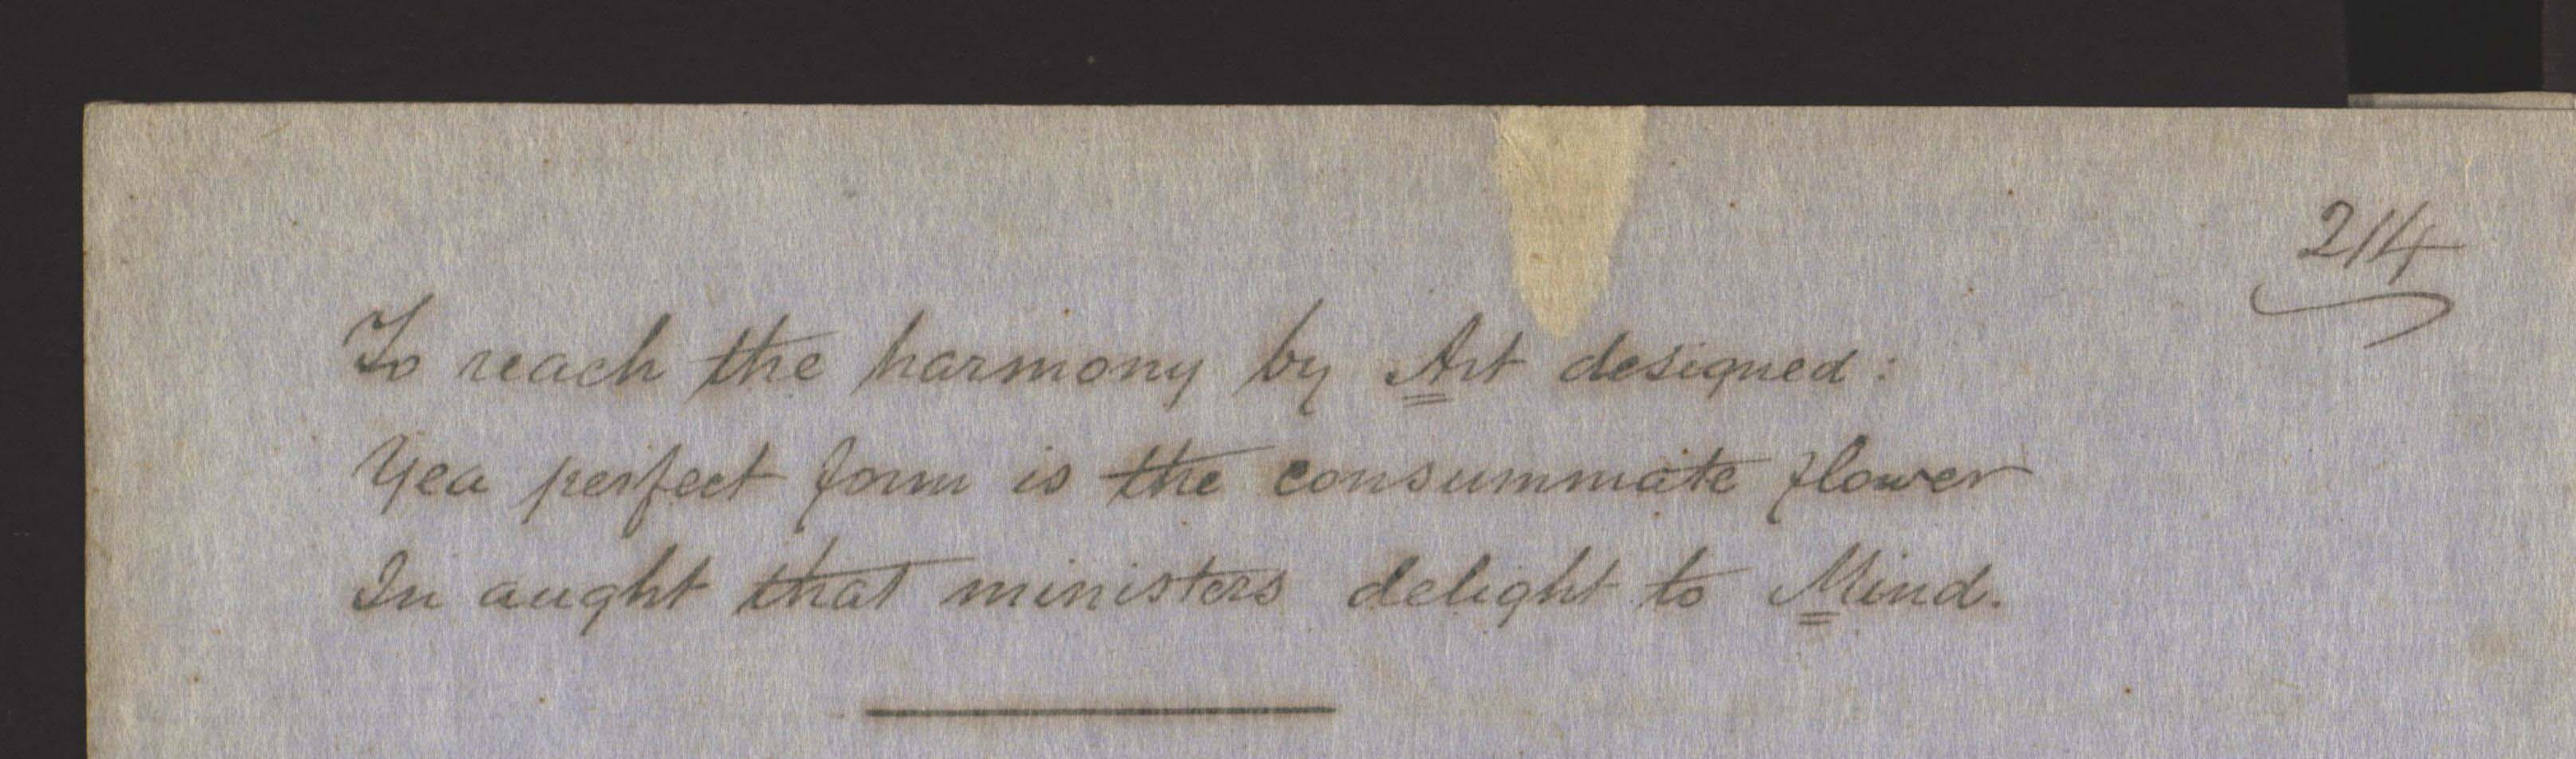 214
To reach the harmony by Art designed:
Yea perfect form is the consummate flower
In aught that ministers delight to Mind.